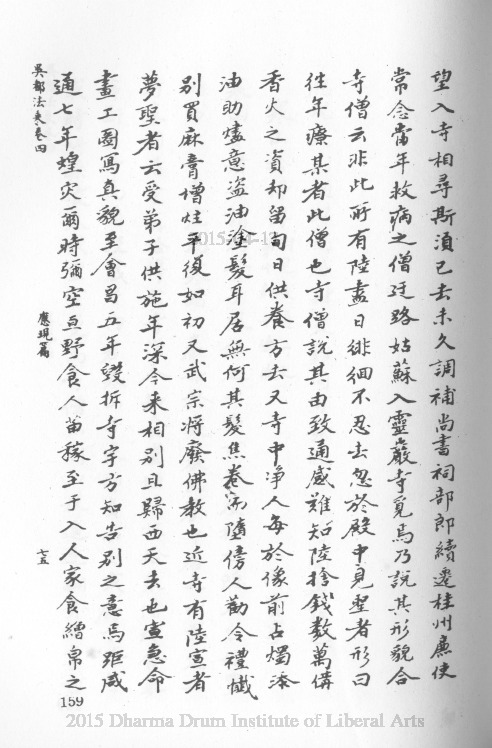 望入寺相尋斯須已去未久調補尚書祠部郎續遷桂州廉使
常念當年救病之僧迂路姑蘇入靈巖寺覓焉乃說其形貌合
寺僧云非此所有陸盡日徘徊不忍去忽於殿中見聖者形曰
往年療某者此僧也寺僧說其由致通感難知陸捨錢數萬備
香火之資却留旬日供養方去又寺中淨人每於像前占燭添
油助燼意盜油塗髮耳居無何其髮焦卷而隨傍人勸令禮懺
別買麻膏增炷平復如初又武宗將廢佛教也近寺有陸宣者
夢聖者云受弟子供施年深今來相別且歸西天去也宣急命
畫工圖寫真貌至會昌五年毀拆寺宇方知告別之意焉距咸
通七年蝗災爾時彌空亘野食人苗稼至于入人家食繒帛之
吳都法乘卷四
應現篇
七五
159
2015 Dharma Drum Institute of Liberal Arts